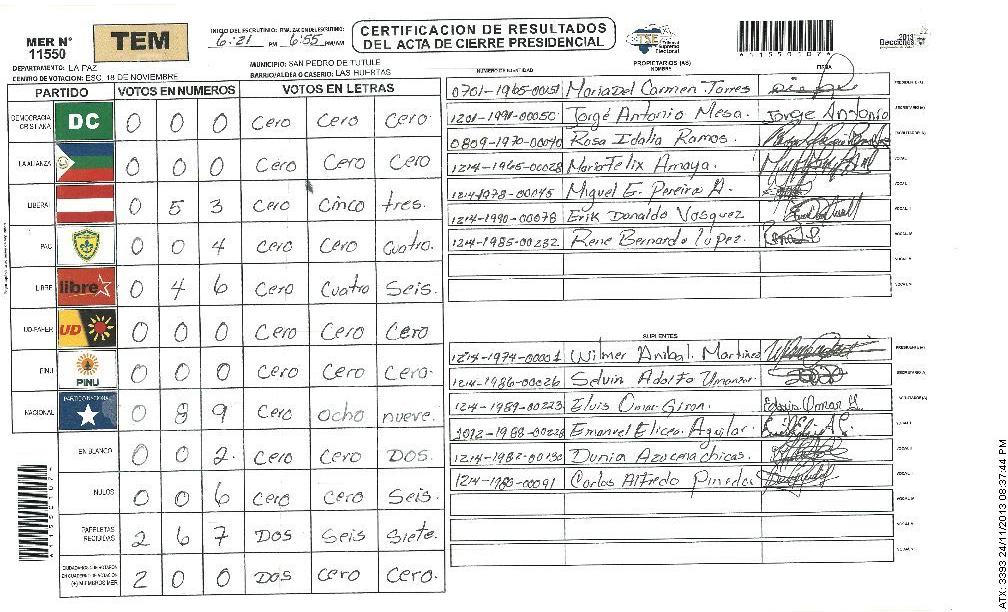 MER N° 11550
TEM
INICIO DEL ESCRUTINIO: 6:21 PM FINALIZACION DEL ESCRUTINIO: 6:55 PM/AM
CERTIFICACION DE RESULTADOS
DEL ACTA DE CIERRE PRESIDENCIAL
TSE Tribunal Supremo Electoral
A11550107A
2013
Elecciones
DEPARTAMENTO: LA PAZ
MUNICIPIO: SAN PEDRO DE TUTULE
CENTRO DE VOTACION: ESC. 18 DE NOVIEMBRE
BARRIO/ALDEA O CASERIO: LAS HUERTAS
PARTIDO VOTOS EN NUMEROS VOTOS EN LETRAS
DEMOCRACIA CRISTIANA DC 0 0 0 Cero Cero Cero
LA ALIANZA 0 0 0 Cero Cero Cero
LIBERAL 0 5 3 Cero Cinco tres.
PAC 0 0 4 Cero Cero Cuatro.
LIBRE libre 0 4 6 Cero Cuatro Seis.
UD-FAPER UD 0 0 0 Cero Cero Cero
PINU PINU 0 0 0 Cero Cero Cero.
NACIONAL PARTIDO NACIONAL 0 8 9 Cero ocho nueve.
EN BLANCO 0 0 2. Cero Cero DOS.
NULOS 0 0 6 Cero Cero Seis.
PAPELETAS RECIBIDAS 2 6 7 DOS Seis Siete.
CIUDADANOS QUE VOTARON EN CUADERNO DE VOTACION (+) MIEMBROS MER 2 0 0 DOS Cero Cero.
PROPIETARIOS (AS)
NUMERO DE IDENTIDAD NOMBRE FIRMA
0701-1965-00151 Maria Del Carmen Torres PRESIDENTE(A)
1201-1991-00050 Jorge Antonio Mesa. Jorge Antonio SECRETARIO(A)
0809-1970-00040 Rosa Idalia Ramos. ESCRUTADOR(A)
1214-1965-00028 Maria Felix Amaya. VOCAL I
1214-1978-00045 Miguel E. Pereira A. VOCAL II
1214-1990-00078 Erik Donaldo Vasquez VOCAL III
1214-1985-00232 Rene Bernardo Lopez. VOCAL IV
VOCAL V
VOCAL VI
SUPLENTES
1214-1974-00001 Wilmer Anibal. Martinez PRESIDENTE(A)
1214-1986-00026 Selvin Adolfo Umanzor. SECRETARIO(A)
1214-1989-00223 Elvis Omar Giron. ESCRUTADOR(A)
1012-1988-00228 Emanuel Elicea. Aguilar. VOCAL I
1214-1982-00132 Dunia Azucena chicas. VOCAL II
1214-1980-00091 Carlos Alfredo Pineda VOCAL III
VOCAL IV
VOCAL V
VOCAL VI
A11550107A
ATX: 3393 24/11/2013 08:37:44 PM